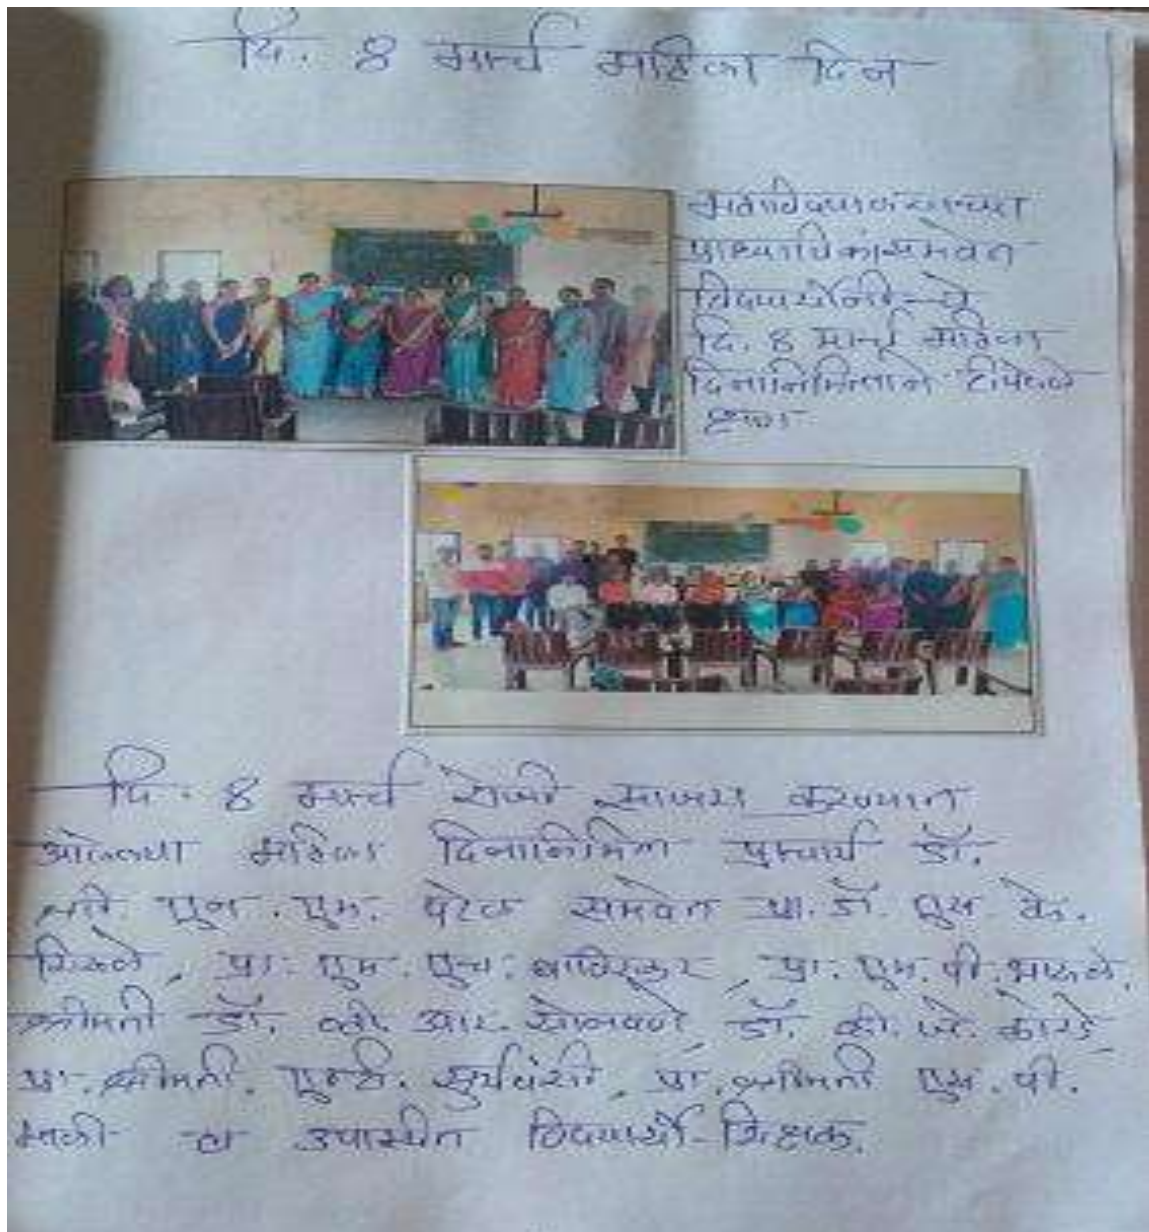 दि. 8 मार्च महिला दिन
महाविद्यालयाच्या
प्राध्यापिकांसमवेत
विद्यार्थीनीचे
दि. 8 मार्च महिला
दिनानिमित्ताने टीपलेले
दि. 8 मार्च रोजी साजरा करण्यात
आलेल्या महिला दिनानिमित्त प्राचार्य डॉ.
एन. एम. पटेल समवेत प्रा. डॉ. एस. के.
प्रा. एम. एच. प्रा. एम. पी.
श्रीमती डॉ. व्ही. आर. सोनवणे, डॉ. व्ही. जे.
प्रा. श्रीमती. सुर्यवंशी, प्रा. श्रीमती एस. पी.
माळी व उपास्थित विद्यार्थी-शिक्षक.